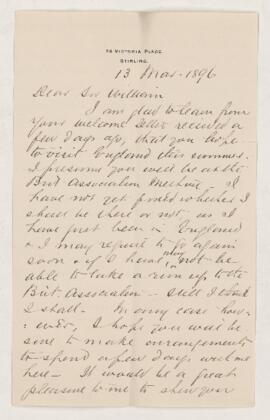 26 VICTORIA PLACE,
STIRLING.
13 Mar. 1896
Dear Sir William
I am glad to learn from
your welcome letter received a
few days ago, that you hope
to visit England this summer.
I presume you will be at the
Brit Association Meeting - I
have not yet fixed whether I
shall be there or not, as I
have just been in England
& I may require to go again
soon & if I have, may not be
able to take a run up to the
Brit. Association - Still I think
I shall. In any case how-
ever, I hope you will be
sure to make arrangements
to spend a few days with me
here - It would be a great
pleasure to me to shew you